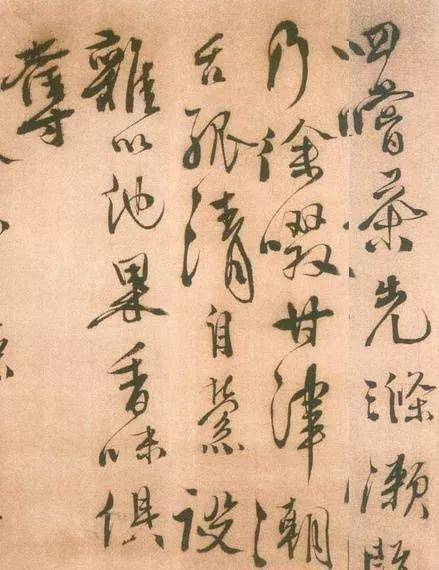 四嘗茶先滌漱既
乃徐啜甘津潮
舌孤清自縈設
雜以他果香味俱
奪